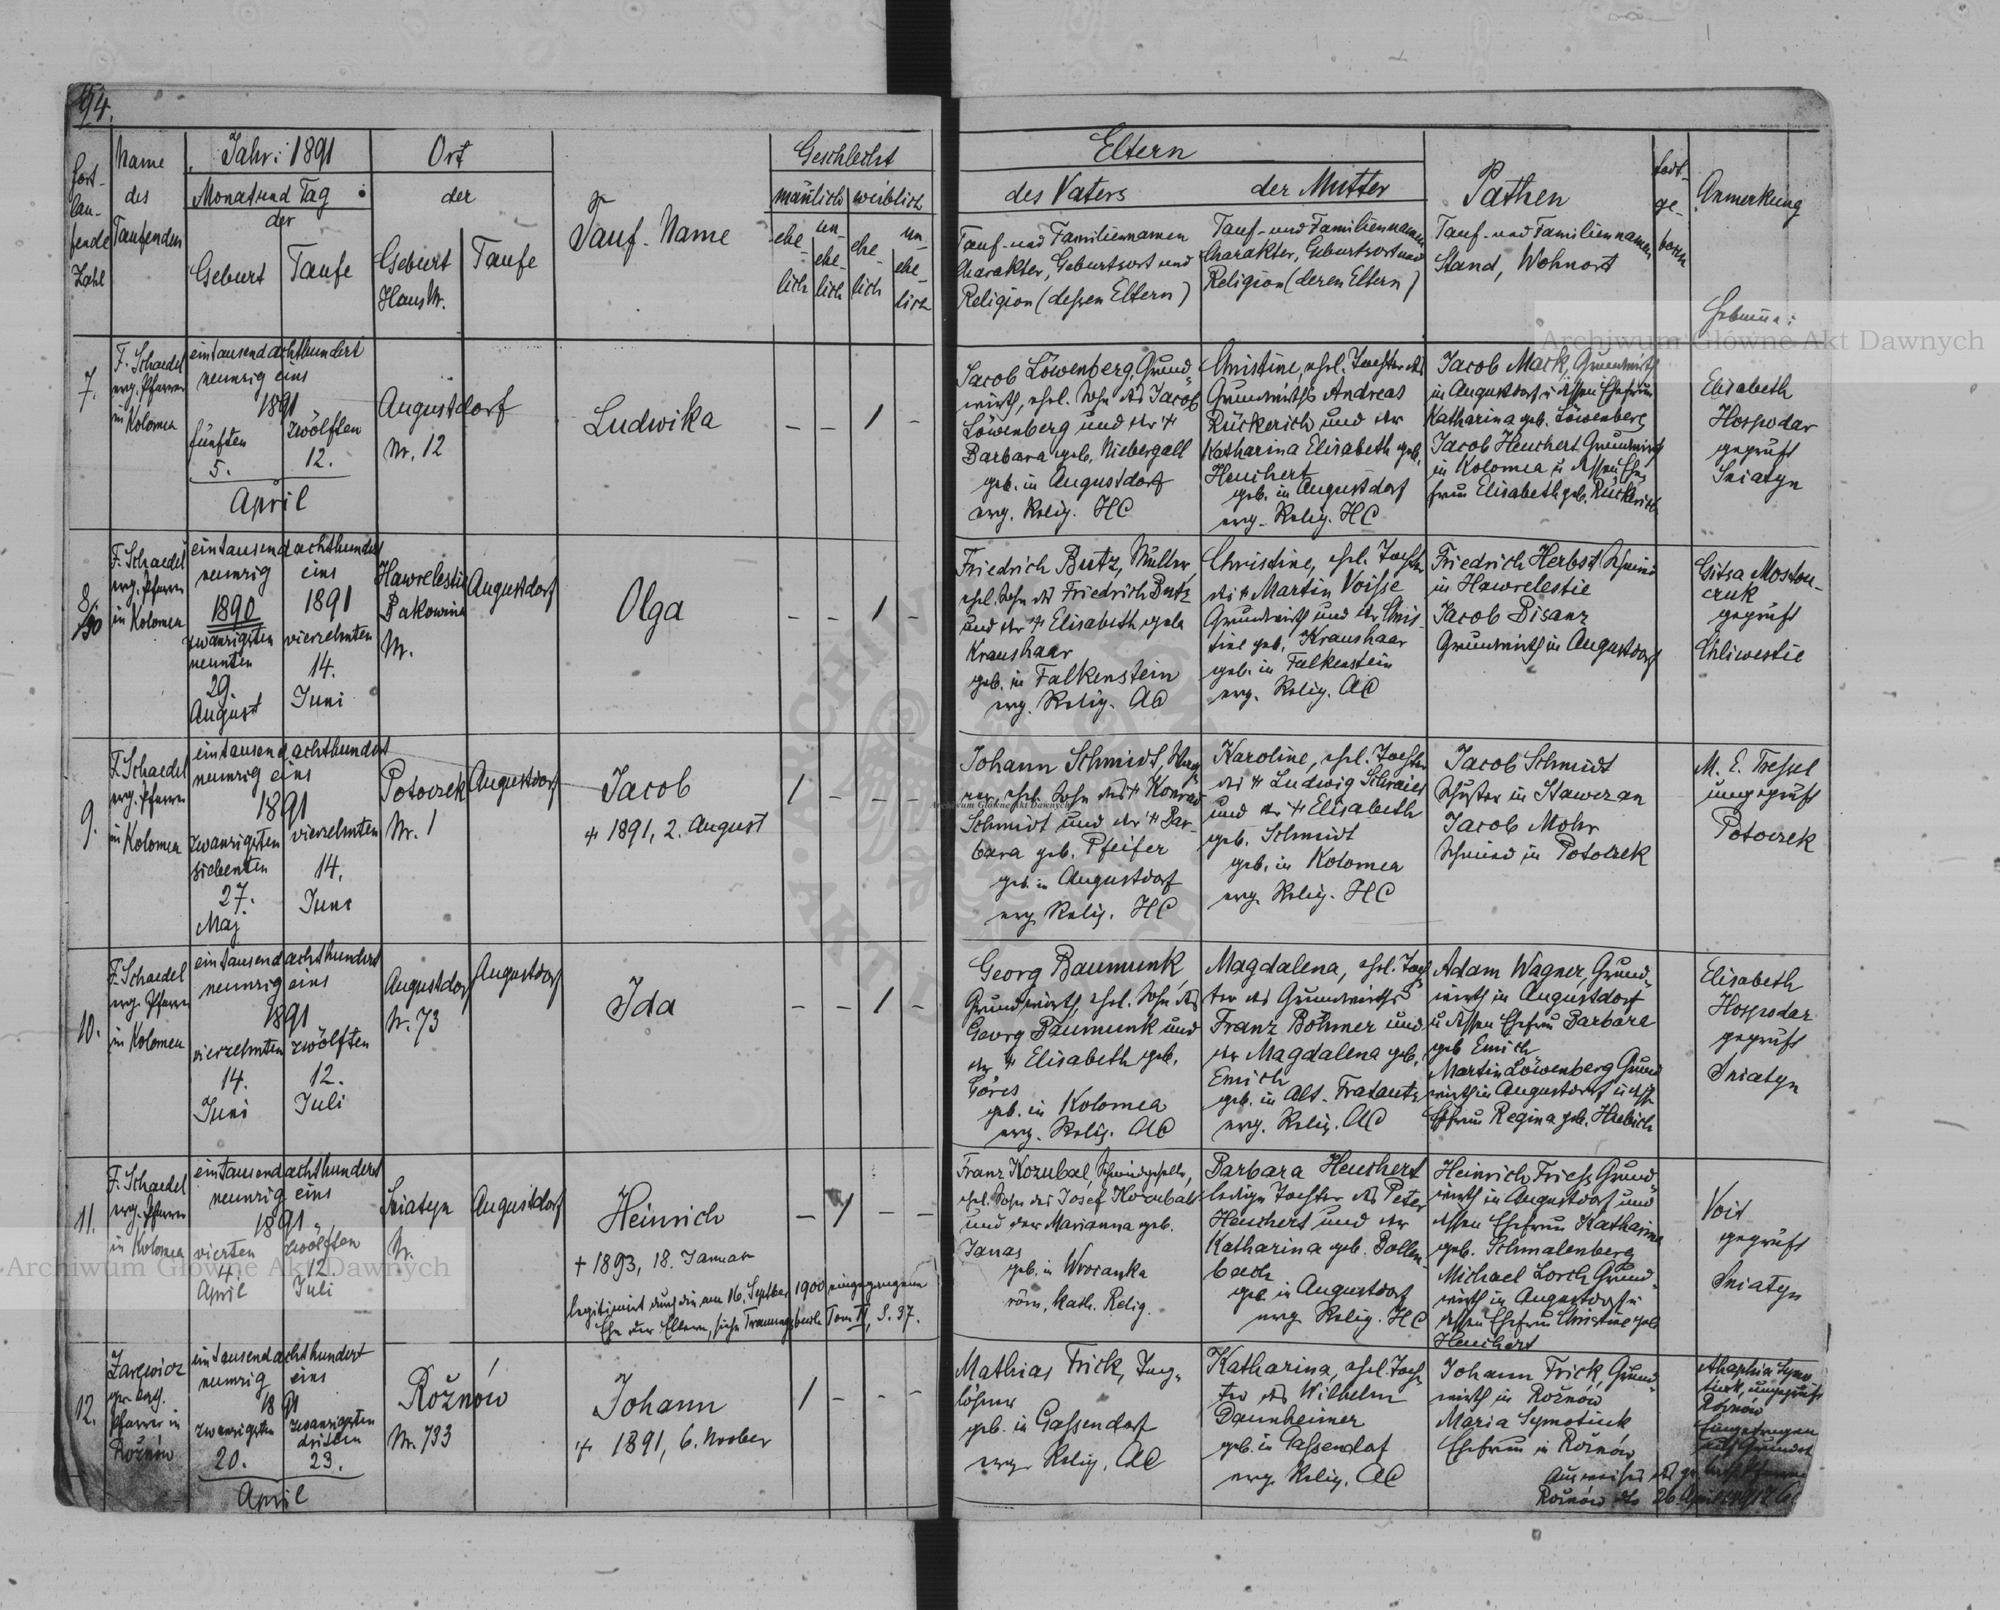 94.
Fort-
lau-
fende
Zahl
Name
des
Taufenden
Jahr: 1891
Monat und Tag
der
Geburt
Taufe
Ort
der
Geburt
Haus Nr.
Taufe
Tauf-Name
Geschlecht
mänlich
weiblich
ehe-
lich
un-
ehe-
lich
ehe-
lich
un-
ehe-
lich
Eltern
des Vaters
Tauf- und Familiennamen
Charakter, Geburtsort und
Religion (dessen Eltern)
der Mutter
Tauf- und Familiennamen
Charakter, Geburtsort und
Religion (deren Eltern)
Pathen
Tauf- und Familiennamen
Stand, Wohnort
todt-
ge-
boren
Anmerkung
Hebamme:
7.
F. Schaedel
evg. Pfarrer
in Kolomea
eintausend achthundert
neunzig eins
1891
fünften
5.
zwölften
12.
April
Augustdorf
Nr. 12
Ludwika
– – 1 –
Jacob Löwenberg, Grund-
wirth, ehel. Sohn des Jacob
Löwenberg und der +
Barbara geb. Niebergall
geb. in Augustdorf
evg. Relig. HC
Christine, ehel. Tochter des
Grundwirths Andreas
Rückerich und der
Katharina Elisabeth geb.
Heuchert
geb. in Augustdorf
evg. Relig. HC
Jacob Mack, Grundwirth
in Augustdorf u dessen Ehefrau
Katharina geb. Löwenberg
Jacob Heuchert Grundwirth
in Kolomea u dessen Ehe-
frau Elisabeth geb. Rückerich
Elisabeth
Hospodar
geprüft
Sniatyn
8/90
F. Schaedel
evg. Pfarrer
in Kolomea
eintausend achthundert
neunzig eins
1890
zwanzigsten
neunten
29.
August
1891
vierzehnten
14.
Juni
Hawrelestie
Bukowina
Nr.
Augustdorf
Olga
– – 1 –
Friedrich Butz, Müller,
ehel. Sohn des Friedrich Butz
und der + Elisabeth geb.
Kraushaar
geb. in Falkenstein
evg. Relig. AC
Christine, ehel. Tochter
des + Martin Voisse
Grundwirth und der Chris-
tine geb. Kraushaar
geb. in Falkenstein
evg. Relig. AC
Friedrich Herbst, Schmied
in Hawrelestie
Jacob Bisanz
Grundwirth in Augustdorf
Gitsa Moscou-
czuk
geprüft
Chliwestie
9.
F. Schaedel
evg. Pfarrer
in Kolomea
eintausend achthundert
neunzig eins
1891
zwanzigsten
siebenten
27.
Maj
vierzehnten
14.
Juni
Potoczek
Nr. 1
Augustdorf
Jacob
+ 1891, 2. August
1 – – –
Johann Schmidt, Wag-
ner, ehel. Sohn des + Konrad
Schmidt und der + Bar-
bara geb. Pfeifer
geb. in Augustdorf
evg Relig. HC
Karoline, ehel. Tochter
des + Ludwig Schraier
und der + Elisabeth
geb. Schmidt
geb. in Kolomea
evg. Relig. HC
Jacob Schmidt
Schuster in Stawczan
Jacob Mohr
Schmied in Potoczek
M. E. Tressel
ungeprüft
Potoczek
10.
F. Schaedel
evg. Pfarrer
in Kolomea
eintausend achthundert
neunzig eins
1891
vierzehnten
14.
Juni
zwölften
12.
Juli
Augustdorf
Nr. 73
Augustdorf
Ida
– – 1 –
Georg Baumunk,
Grundwirth, ehel. Sohn des
Georg Baumunk und
der + Elisabeth geb.
Göres
geb. in Kolomea
evg. Relig. AC
Magdalena, ehel. Toch-
ter des Grundwirths
Franz Böhmer und
der Magdalena geb.
Emich
geb. in Alt-Fratautz
evg. Relig. AC
Adam Wagner, Grund-
wirth in Augustdorf
u dessen Ehefrau Barbara
geb Emich
Martin Löwenberg Grund-
wirth in Augustdorf u dess.
Ehefrau Regina geb. Huebich
Elisabeth
Hospodar
geprüft
Sniatyn
11.
F. Schaedel
evg. Pfarrer
in Kolomea
eintausend achthundert
neunzig eins
1891
vierten
4.
April
zwölften
12.
Juli
Sniatyn
Nr.
Augustdorf
Heinrich
+ 1893, 18. Januar
legitimirt durch die am 16. September 1900 eingegangene
Ehe der Eltern, siehe Trauungsbuch Tom II, S. 37.
– 1 – –
Franz Kozubal, Schmiedgeselle,
ehel. Sohn des Josef Kozubal
und der Marianna geb.
Janas
geb. in Wrocanka
röm. kath. Relig.
Barbara Heuchert
ledige Tochter des Peter
Heuchert und der
Katharina geb. Bollen-
bach
geb. in Augustdorf
evg Relig. HC
Heinrich Friess, Grund-
wirth in Augustdorf und
dessen Ehefrau Katharina
geb. Schmalenberg
Michael Lorch Grund-
wirth in Augustdorf u
dessen Ehefrau Christine geb.
Heuchert
Voit
geprüft
Sniatyn
12.
Zarewicz
gr. kath.
Pfarrer in
Rožnów
eintausend achthundert
neunzig eins
1891
zwanzigsten
20.
zwanzigsten
dritten
23.
April
Rožnów
Nr. 733
Johann
+ 1891, 6. Novber
1 – – –
Mathias Frick, Tag-
löhner
geb. in Gassendorf
evg. Relig. AC
Katharina, ehel. Toch-
ter des Wilhelm
Dannheimer
geb. in Gassendorf
evg. Relig. AC
Johann Frick, Grund-
wirth in Rožnów
Maria Symotiuk
Ehefrau in Rožnów
ungeprüft
Rožnów
Eingetragen
auf Grund des
Ausweises des gr. kath. Pfarramtes
Rožnów dto 26 April
Archiwum Główne Akt Dawnych
Archiwum Główne Akt Dawnych
Archiwum Główne Akt Dawnych